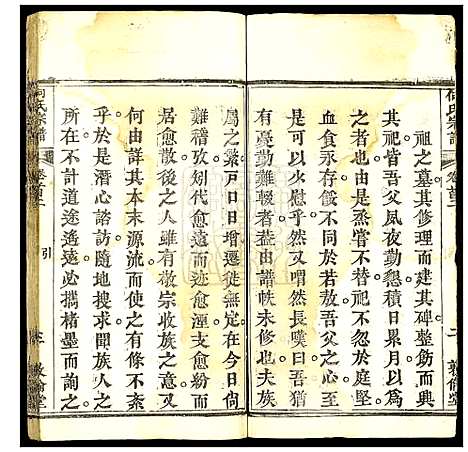 何氏宗譜
卷首二
二
敦倫堂
祖之墓其修理而建其碑整飭而典
其祀皆吾父夙夜勤懇積日累月以
之者也由是烝嘗不替祀不忽於庭堅
血食永存餒不與若敖矣又何莫而非
是可以少慰乎然又喟然長嘆曰吾
有憂勤難輟者蓋由譜帙未修也夫族
屬之繁戶口日增遷徙無定在今日倘
難稽攷幾代愈遠而迹愈湮支愈紛而
居愈散後之人雖有敬宗收族之意又
何由詳其本末源流而使之有條不紊
乎於是潛心諮訪隨地搜求聞族人之
所在不計道途遙遠必攜楮墨而詢之
何氏宗譜
卷首二
引
三
敦倫堂